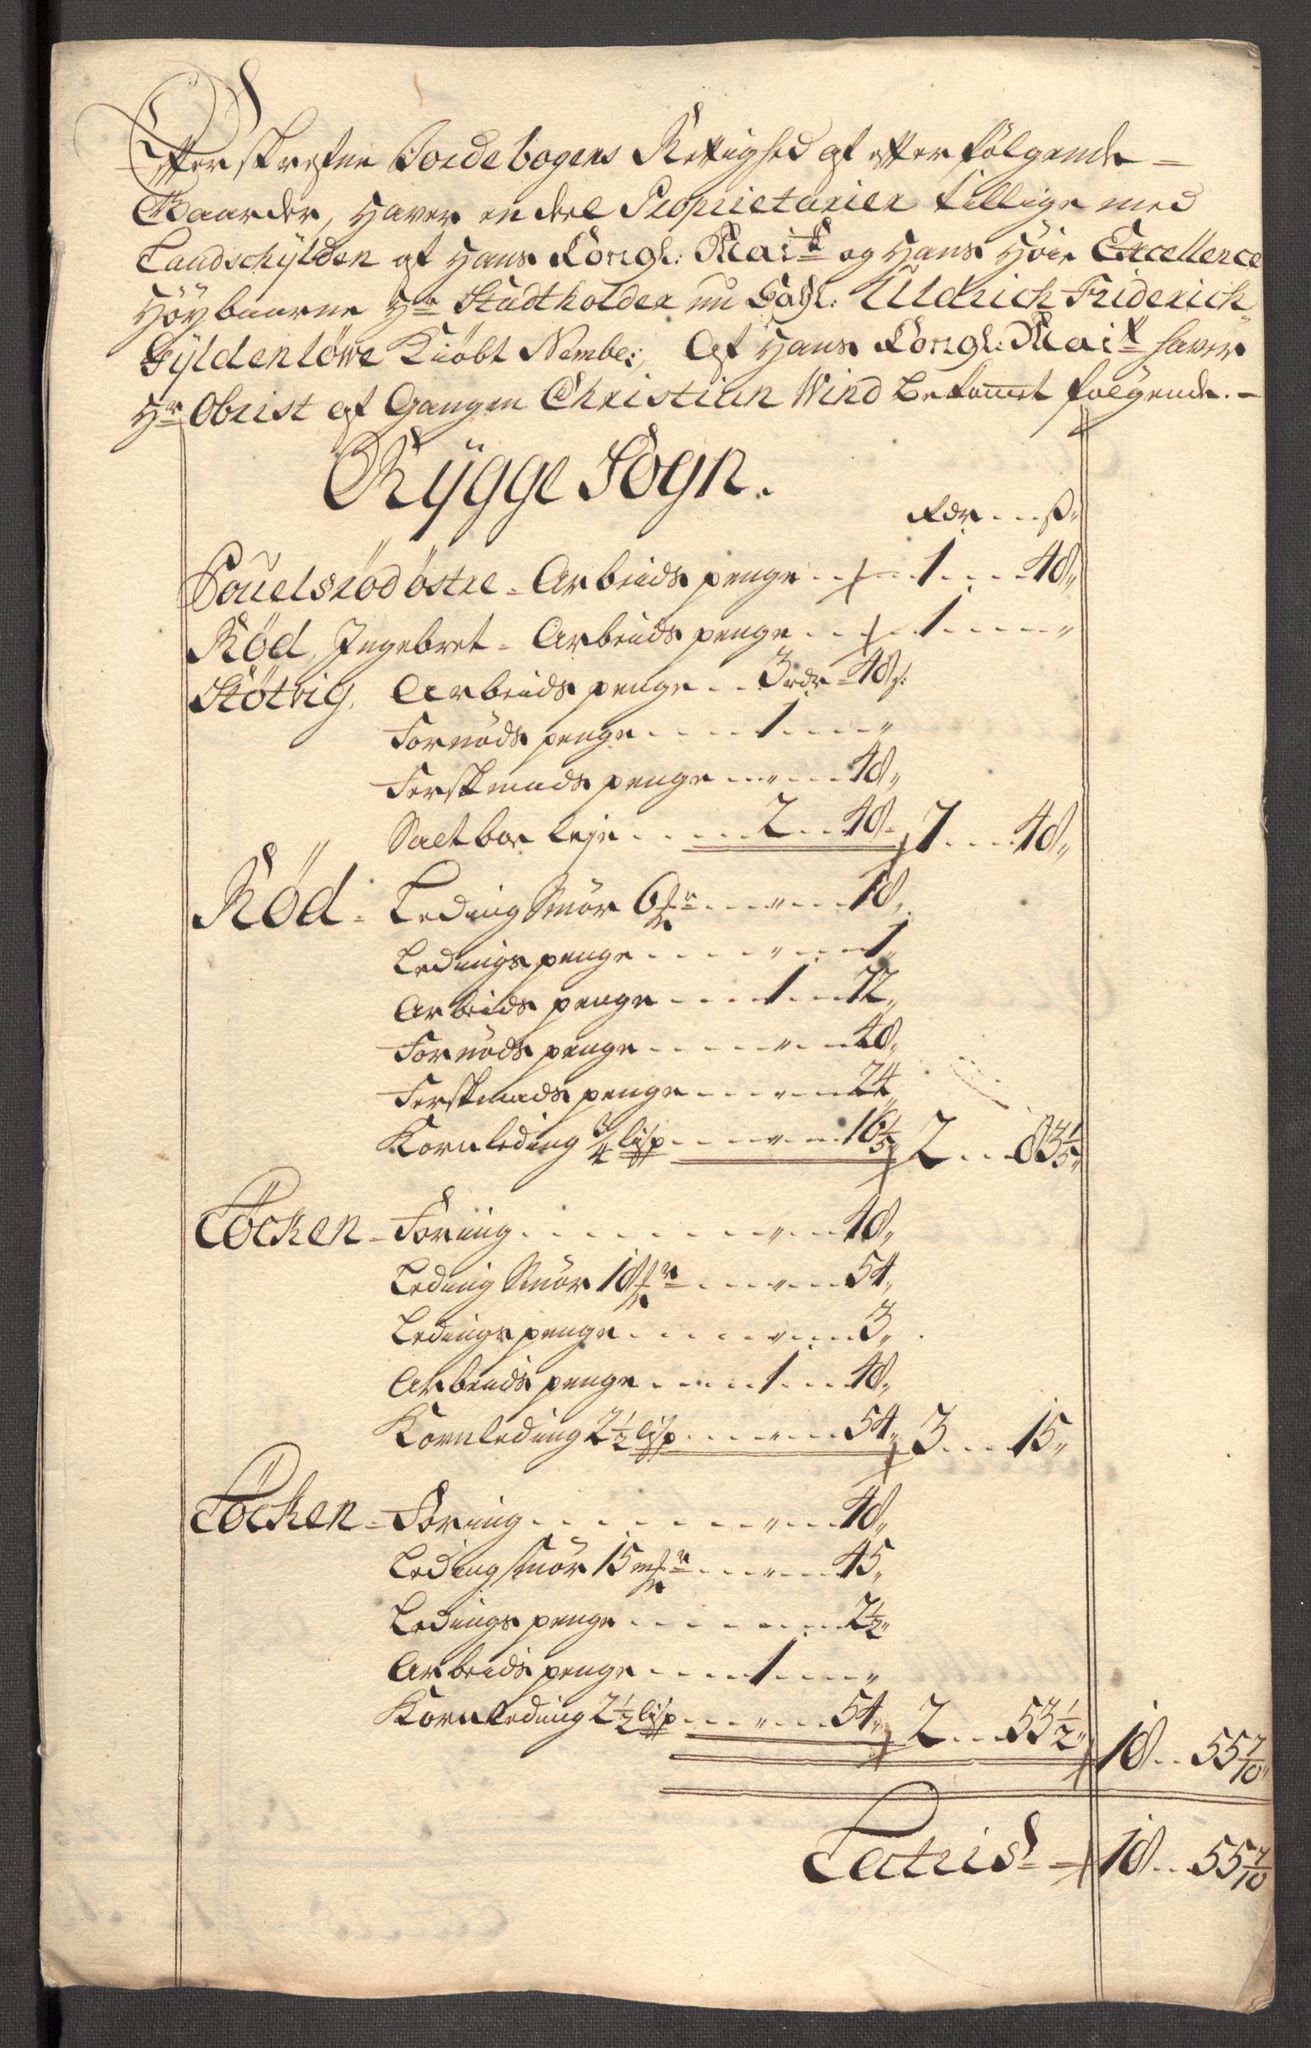 Effterskrefne Jordebogens Rettighed af efterfølgende
Gaarder, haver en deel Proprietarier tillige med
Landschÿlden af Hans Kongl: Mai:ts og Hans Höie Excellence
Höÿbaarne Hr Stadtholder nu Sahl: Uldrich Friderich
Gÿldenlöwe Kiöbt Nembl:, Af Hans Kongl: Mait haver
Hr Obrist af Gangen Christian Wind bekomt fölgende.
Rÿgge Sogn.
Rdr ... ß
Pouelsröd östre - Arbeids penge .. 1 .... 48
Röd, Ingebret - Arbeids penge ... 1 ..... "
Stötvig, Arbeids penge .. 3 rdr - 48 ß:
Fornöds penge ..... 1 ..... "
Ferskmads penge ... " .... 48
Saltbor leje ..... 2 ... 48 7 .... 48
Röd - Leding Smör 6 ... " .... 18
Ledings penge ..... " .... 1
Arbeids penge .... 1 .... 72
Fornöds penge ..... " .... 48
Ferskmads penge .... " .... 24
Kornleding 3/4 lisp .... " ... 16 1/5 2 ... 83 1/5
Töcken - Foring ....... " .... 48
Leding Smör 18 .... " .... 54
Ledings penge ..... " .... 3
Arbeids penge ..... 1 .... 48
Kornleding 2 1/2 lisp .... " .... 54 3 .... 15
Töcken - Foring ....... " .... 48
Leding smör 15 .... " .... 45
Ledings penge ..... " .... 2 1/2
Arbeids penge ..... 1 ..... "
Kornleding 2 1/2 lisp .... " .... 54 2 ... 53 1/2 18 .. 55 7/10
Lateris 18 .. 55 7/10